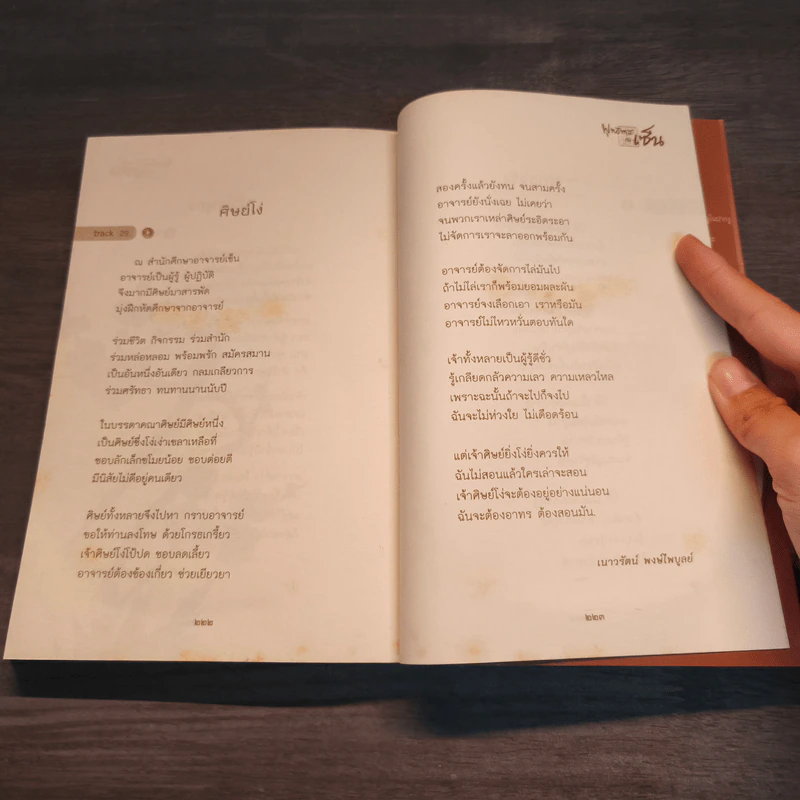 ศิษย์โง่
Track 29.
ณ สำนักศึกษาอาจารย์เซ็น
อาจารย์เป็นผู้รู้ ผู้ปฏิบัติ
จึงมากมีศิษย์มาสารพัด
มุ่งฝึกหัดศึกษาจากอาจารย์
ร่วมชีวิต กิจกรรม ร่วมสำนัก
ร่วมหล่อหลอม พร้อมพรัก สมัครสมาน
เป็นอันหนึ่งอันเดียว กลมเกลียวการ
ร่วมศรัทธา ทนทานนานนับปี
ในบรรดาคณาศิษย์มีศิษย์หนึ่ง
เป็นศิษย์ซึ่งโง่เง่าเขลาเหลือที่
ชอบลักเล็กขโมยน้อย ชอบต่อยตี
มีนิสัยไม่ดีอยู่คนเดียว
ศิษย์ทั้งหลายจึงไปหา กราบอาจารย์
ขอให้ท่านลงโทษ ด้วยโกรธเกรี้ยว
เจ้าศิษย์โง่โป้ปด ชอบลดเลี้ยว
อาจารย์ต้องข้องเกี่ยว ช่วยเยียวยา
๒๒๒
เซ็น
สองครั้งแล้วยังทน จนสามครั้ง
อาจารย์ยังนั่งเฉย ไม่เคยว่า
จนพวกเราเหล่าศิษย์ระอิดระอา
ไม่จัดการเราจะลาออกพร้อมกัน
อาจารย์ต้องจัดการไล่มันไป
ถ้าไม่ไล่เราก็พร้อมยอมผละผัน
อาจารย์จงเลือกเอา เราหรือมัน
อาจารย์ไม่ไหวหวั่นตอบทันใด
เจ้าทั้งหลายเป็นผู้รู้ดีชั่ว
รู้เกลียดกลัวความเลว ความเหลวไหล
เพราะฉะนั้นถ้าจะไปก็จงไป
ฉันจะไม่ห่วงใย ไม่เดือดร้อน
แต่เจ้าศิษย์ยิ่งโง่ยิ่งควรให้
ฉันไม่สอนแล้วใครเล่าจะสอน
เจ้าศิษย์โง่จะต้องอยู่อย่างแน่นอน
ฉันจะต้องอาทร ต้องสอนมัน.
เนาวรัตน์ พงษ์ไพบูลย์
๒๒๓